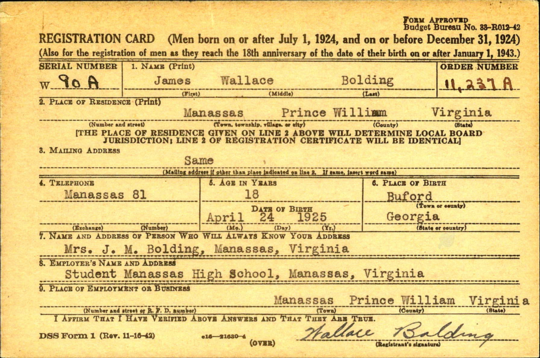 FORM APPROVED
Budget Bureau No. 33-R012-42
REGISTRATION CARD (Men born on or after July 1, 1924, and on or before December 31, 1924)
(Also for the registration of men as they reach the 18th anniversary of the date of their birth on or after January 1, 1943.)
SERIAL NUMBER 1. NAME (Print) ORDER NUMBER
W 90A James Wallace Bolding 11,237A
(First) (Middle) (Last)
2. PLACE OF RESIDENCE (Print)
Manassas Prince William Virginia
(Number and street) (Town, township, village, or city) (County) (State)
[THE PLACE OF RESIDENCE GIVEN ON LINE 2 ABOVE WILL DETERMINE LOCAL BOARD
JURISDICTION; LINE 2 OF REGISTRATION CERTIFICATE WILL BE IDENTICAL]
3. MAILING ADDRESS
Same
(Mailing address if other than place indicated on line 2. If same, insert word same)
4. TELEPHONE 5. AGE IN YEARS 6. PLACE OF BIRTH
Manassas 81 18 Buford
DATE OF BIRTH (Town or county)
April 24 1925 Georgia
(Exchange) (Number) (Mo.) (Day) (Yr.) (State or country)
7. NAME AND ADDRESS OF PERSON WHO WILL ALWAYS KNOW YOUR ADDRESS
Mrs. J. M. Bolding, Manassas, Virginia
8. EMPLOYER'S NAME AND ADDRESS
Student Manassas High School, Manassas, Virginia
9. PLACE OF EMPLOYMENT OR BUSINESS
Manassas Prince William Virginia
(Number and street or R. F. D. number) (Town) (County) (State)
I AFFIRM THAT I HAVE VERIFIED ABOVE ANSWERS AND THAT THEY ARE TRUE.
DSS Form 1 (Rev. 11-16-42) Wallace Bolding
(OVER) (Registrant's signature)